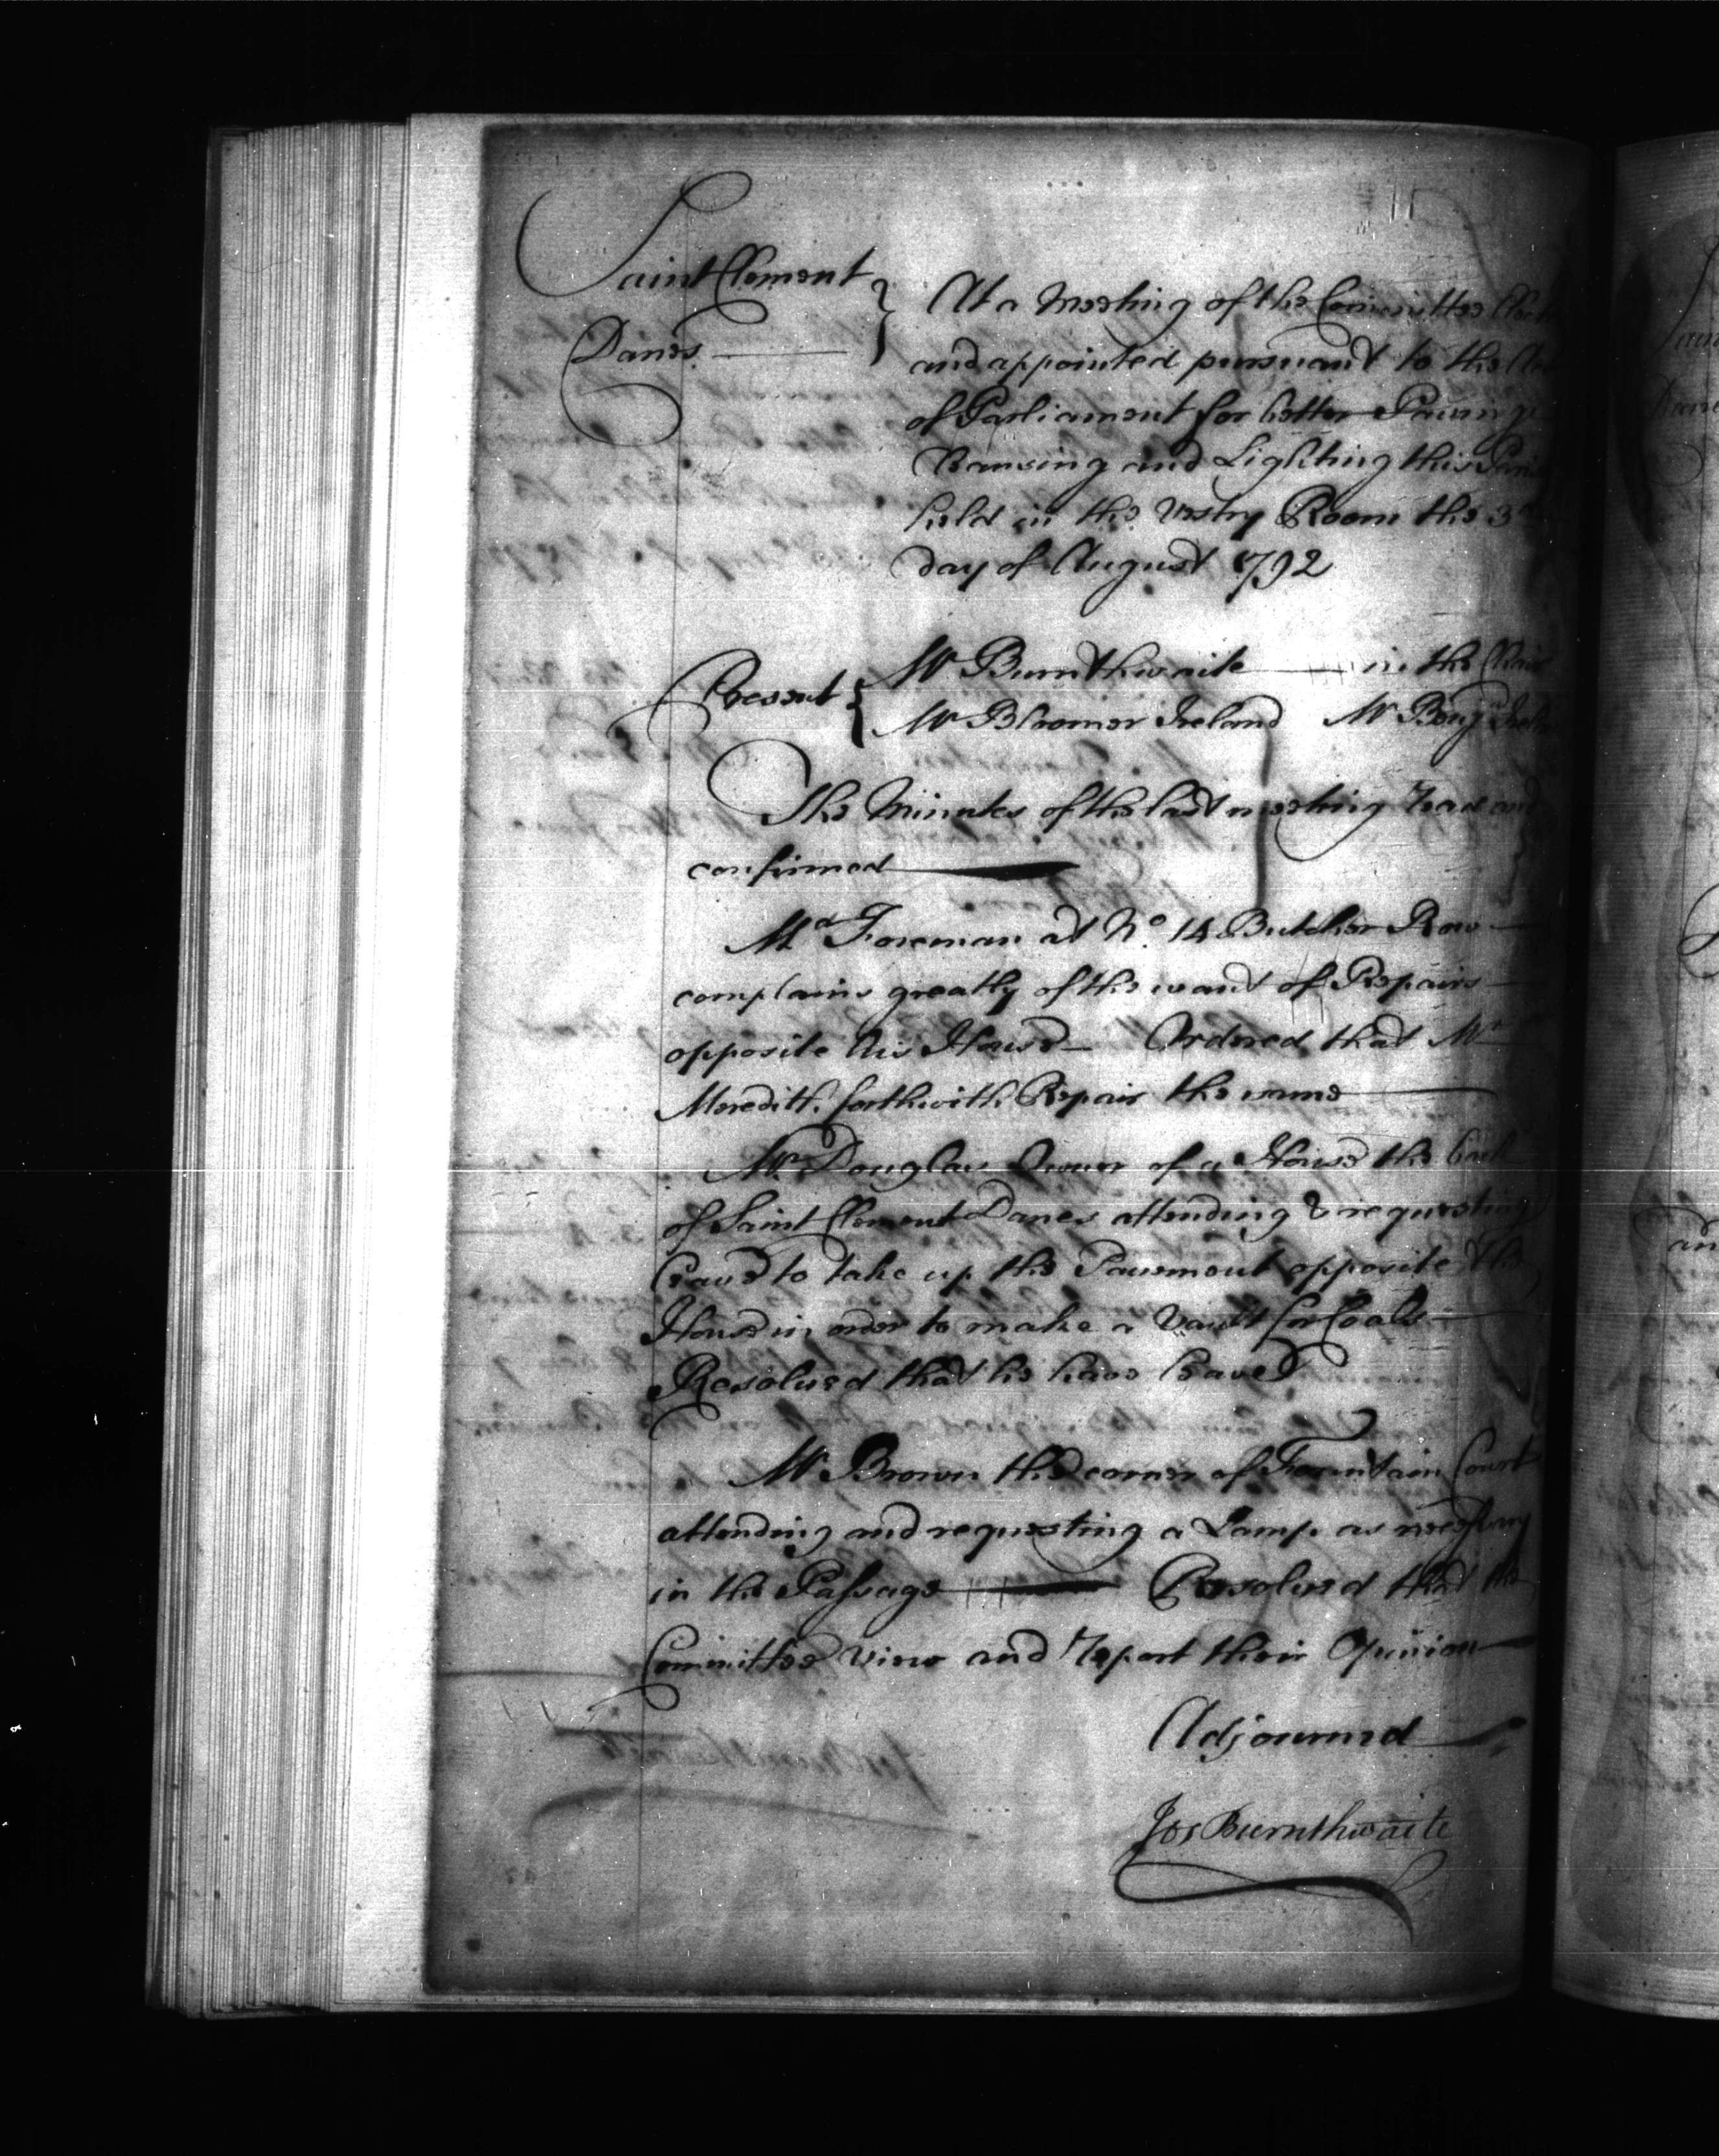 Saint Clement
Danes
At a Meeting of the Committee
and appointed pursuant to the
of Parliament for better Paving
Cleansing and Lighting this
held in the Vestry Room the 3
day of August 1792
Present
Mr Burnthwaite in the Chair
Mr Bloomer Ireland Mr Benjn
The Minutes of the last meeting read and
confirmed
Mr Foreman at No. 14 Butcher Row
complains greatly of the want of Repairs
opposite his House Ordered that Mr
Meredith forthwith Repair the same
Mr Douglas Owner of a House the back
of Saint Clement Danes attending & requesting
Leave to take up the Pavement opposite the
House in order to make a Vault for Coals
Resolved that he have leave
Mr Brown the corner of Fountain Court
attending and requesting a Lamp as necessary
in the Passage Resolved that the
Committee View and report their Opinion
Adjourned
Jos Burnthwaite